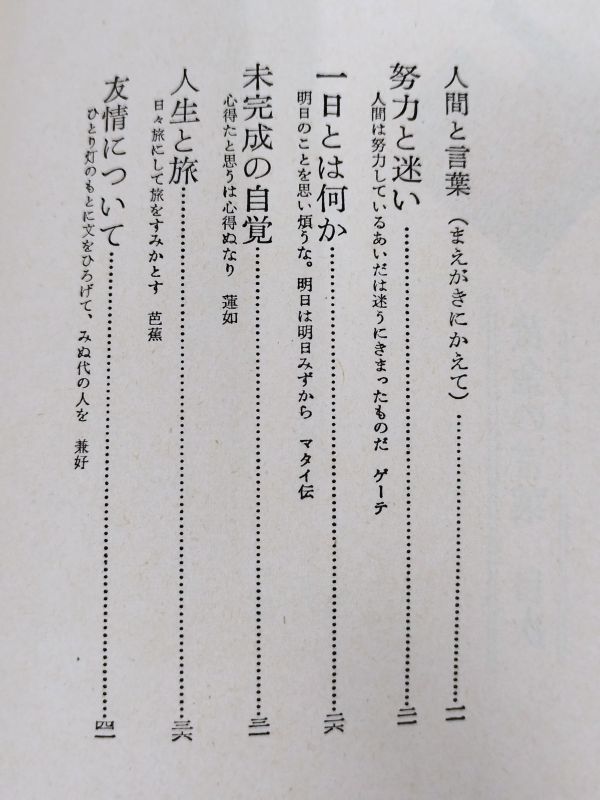 人間と言葉(まえがきにかえて)……………………一一
努力と迷い……………………二一
人間は努力しているあいだは迷うにきまったものだ ゲーテ
一日とは何か……………………二六
明日のことを思い煩うな。明日は明日みずから マタイ伝
未完成の自覚……………………三一
心得たと思うは心得ぬなり 蓮如
人生と旅……………………三六
日々旅にして旅をすみかとす 芭蕉
友情について……………………四一
ひとり灯のもとに文をひろげて、みぬ代の人を 兼好